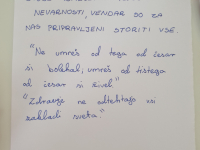 NEVARNOSTI, VENDAR SO ZA
NAS PRIPRAVLJENI STORITI VSE.
"Ne umreš od tega od česar
si bolehal, umreš od tistega
od česar si živel"
"Zdravja ne odtehtajo vsi
zakladi sveta."